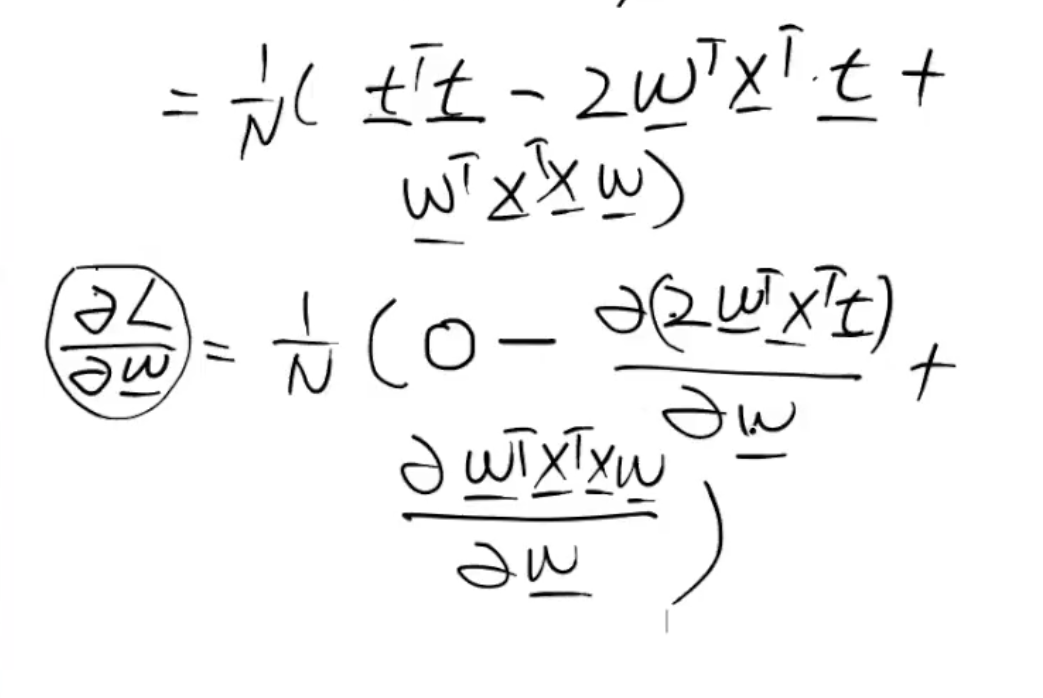 = 1/N ( t^T t - 2 w^T X^T · t +
w^T X^T X w )
∂L/∂w = 1/N ( 0 - ∂(2 w^T X^T t)/∂w +
∂ w^T X^T X w/∂w )